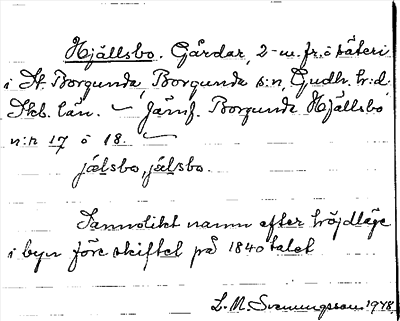 Hjällsbo. Gårdar, 2-m. fr. o säteri
i St. Borgunda, Borgunda s:n, Gudh. h:d.
Skb. län. – Jämf. Borgunda Hjällsbo
n:r 17 o 18. –
jälsbo, jälsbo.
Sannolikt namn efter höjdläge
i byn före skiftet på 1840 talet
L. M. Svenungsson 1948.